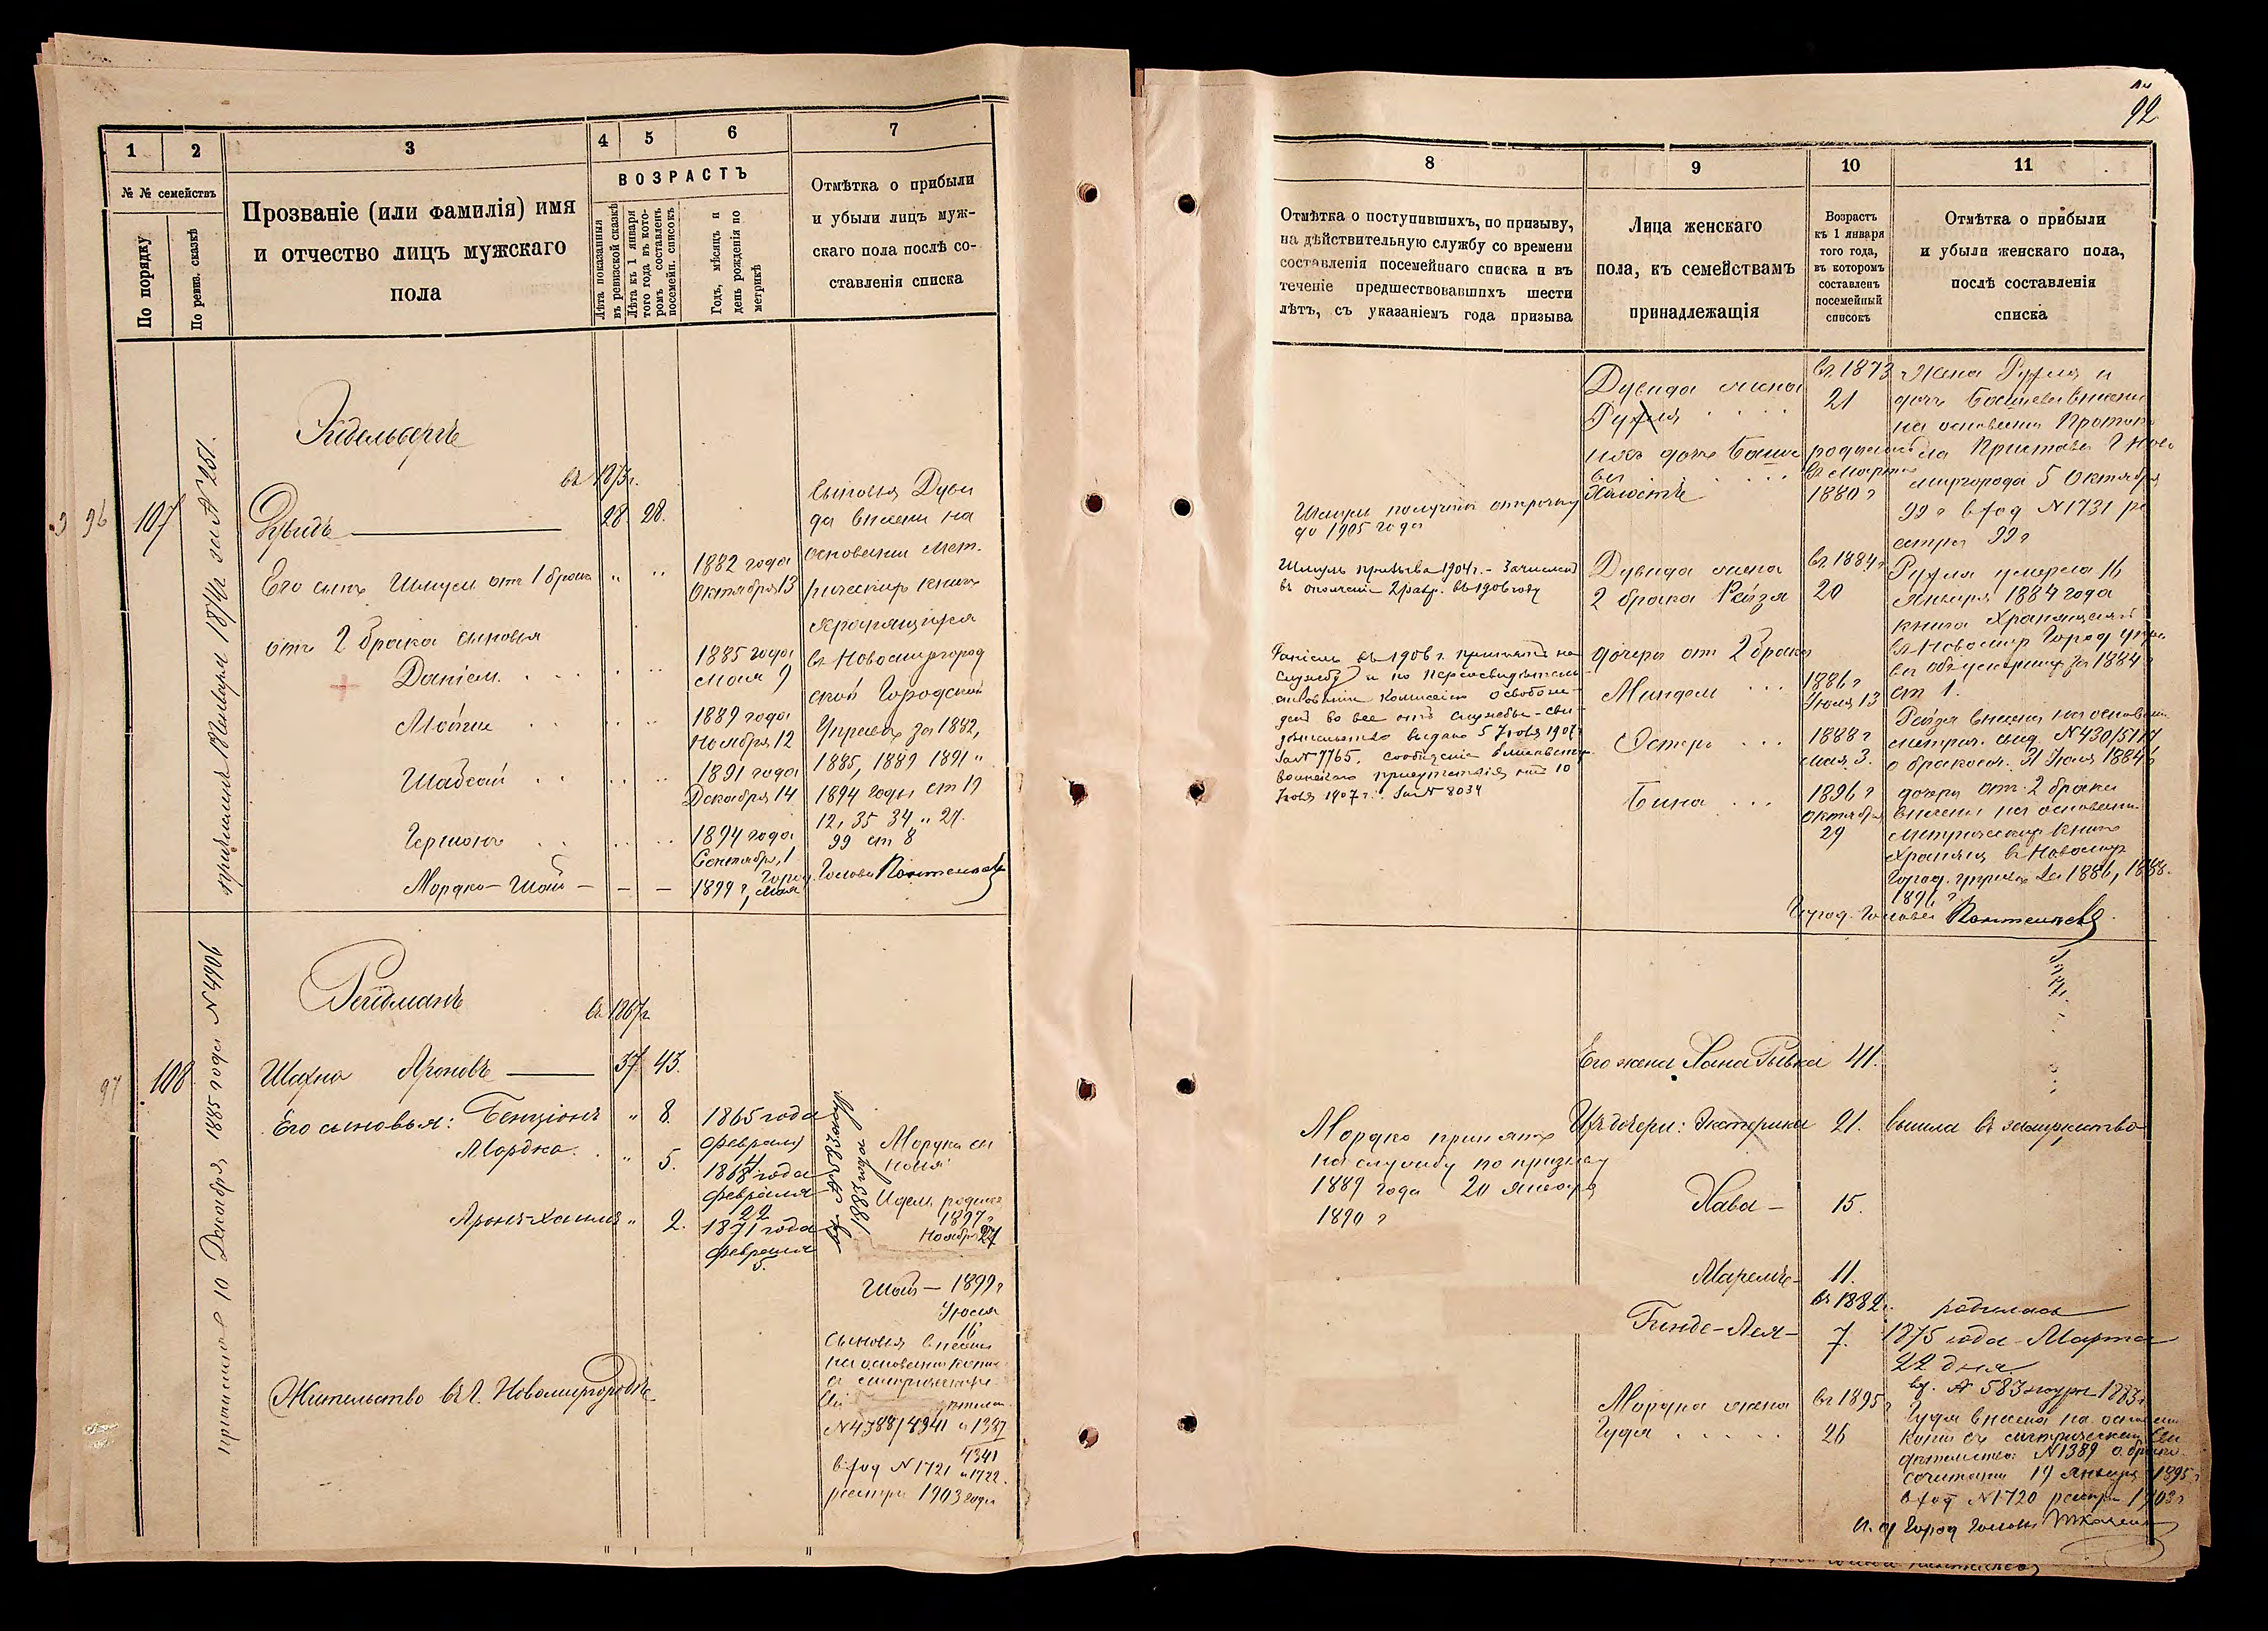 1
2
3
4
5
6
7
№ № семействъ
По порядку
По ревиз. сказкѣ
Прозваніе (или фамилія) имя
и отчество лицъ мужскаго
пола
ВОЗРАСТЪ
Лѣта показанныя
въ ревизской сказкѣ
Лѣта къ 1 января
того года въ кото-
ромъ составленъ
посемейн. списокъ
Годъ, мѣсяцъ и
день рожденія по
метрикѣ
Отмѣтка о прибыли
и убыли лицъ муж-
скаго пола послѣ со-
ставленія списка
Эйдельбергъ
въ 1873 г.
96
107
за № 251.
Дувидъ
28
28.
Его сынъ Шмуль отъ 1 брака
1882 года
Октября 13
отъ 2 брака сыновья
Даніель
1885 года
Мая 9
Мойше
1889 года
Ноября 12
Шабсай
1891 года
Декабря 14
Гершонъ
1894 года
Сентября 1
Мордко-
1899 г, Мая
сыновья Дуви
да внесены на
основаніи мет-
рическихъ книгъ
хранящихся
въ Новомиргород
ской Городской
Управѣ за 1882,
1885, 1889 1891 и
1894 годы ст 19
12, 35 34 и 27.
99 ст 8
Город. Голова
Рейдманъ
въ 1867 г.
97
108
10 Декабря 1885 года № 4906
Шахно Ароновъ
37
43.
Его сыновья: Бенціонъ
"
8.
1865 года
февраля
Мордко.
"
5.
1868 года
февраля
22
"
2.
1871 года
февраля
5.
вх. № 583
1883 года
Мордки сы
новья
Идель родился
1897 г
Ноября 27
1899 г
Іюля
16
сыновья внесены
на основаніи копіи
№ 4388/4341 и 1387
4341
вход № 1721 и 1722.
реестра 1903 года
Жительство въ г. Новомиргородѣ
92
8
9
10
11
Отмѣтка о поступившихъ, по призыву,
на дѣйствительную службу со времени
составленія посемейнаго списка и въ
теченіе предшествовавшихъ шести
лѣтъ, съ указаніемъ года призыва
Лица женскаго
пола, къ семействамъ
принадлежащія
Возрастъ
къ 1 января
того года,
въ которомъ
составленъ
посемейный
списокъ
Отмѣтка о прибыли
и убыли женскаго пола,
послѣ составленія
списка
Шмуль получилъ отсрочку
до 1905 года
Шмуль призыва 1904 г. - Зачисленъ
въ ополченіе 2 разр. въ 1906 году
Даніель въ 1906 г. принятъ на
службу и по переосвидѣтель
ствованіи Комиссіею освобож-
денъ во все отъ службы - сви-
дѣтельство выдано 5 Іюля 1907 г
за № 7765, сообщеніе Елисаветгр.
воинскаго присутствія отъ 10
Іюля 1907 г. за № 8034
Дувида жена
Рухля
въ 1873
21
ихъ дочь Башe
ва
родилась
въ Мартѣ
1880 г
Дувида жена
2 брака Рейзя
въ 1884 г
20
дочери от 2 брака
Миндель
1886 г
Іюля 13
Эстеръ
1888 г
Мая 3.
Бина
1896 г
Октября
29
Жена Рухля и
дочь Башева внесены
на основаніи Проток
ла Пристава г Ново
миргорода 5 Октября
99 г вход № 1731 ре
естра 99 г
Рухля умерла 16
Января 1884 года
книга хранящаяся
въ Новомир Город упра
вѣ объ умершихъ за 1884 г
ст 1.
Рейзя внесена на основан
метрич. свид. № 430/5177
о бракосоч. 31 Іюля 1884 г
дочери от 2 брака
внесены на основаніи
метрическихъ книгъ
хранящ въ Новомир
Город. управѣ за 1886, 1888.
1896 г
Город. Голова
Его жена Хана Рывка
41.
Мордко принятъ
на службу по призыву
1889 года 20 Января
1890 г
Ихъ дочери:
21.
вышла въ замужество
Хава -
15.
11.
въ 1882 г.
Гинде-Лея -
7.
родилась
1875 года Марта
22 дня
вх. № 583 журн 1883 г
Мордка жена
Гудя
въ 1895 г
26
Гудя внесена на основан
копіи съ метрическаго сви
дѣтельства № 1389 о брако
сочетаніи 19 Января 1895 г
вход № 1720 реестра 1903 г
И. д Город Головы